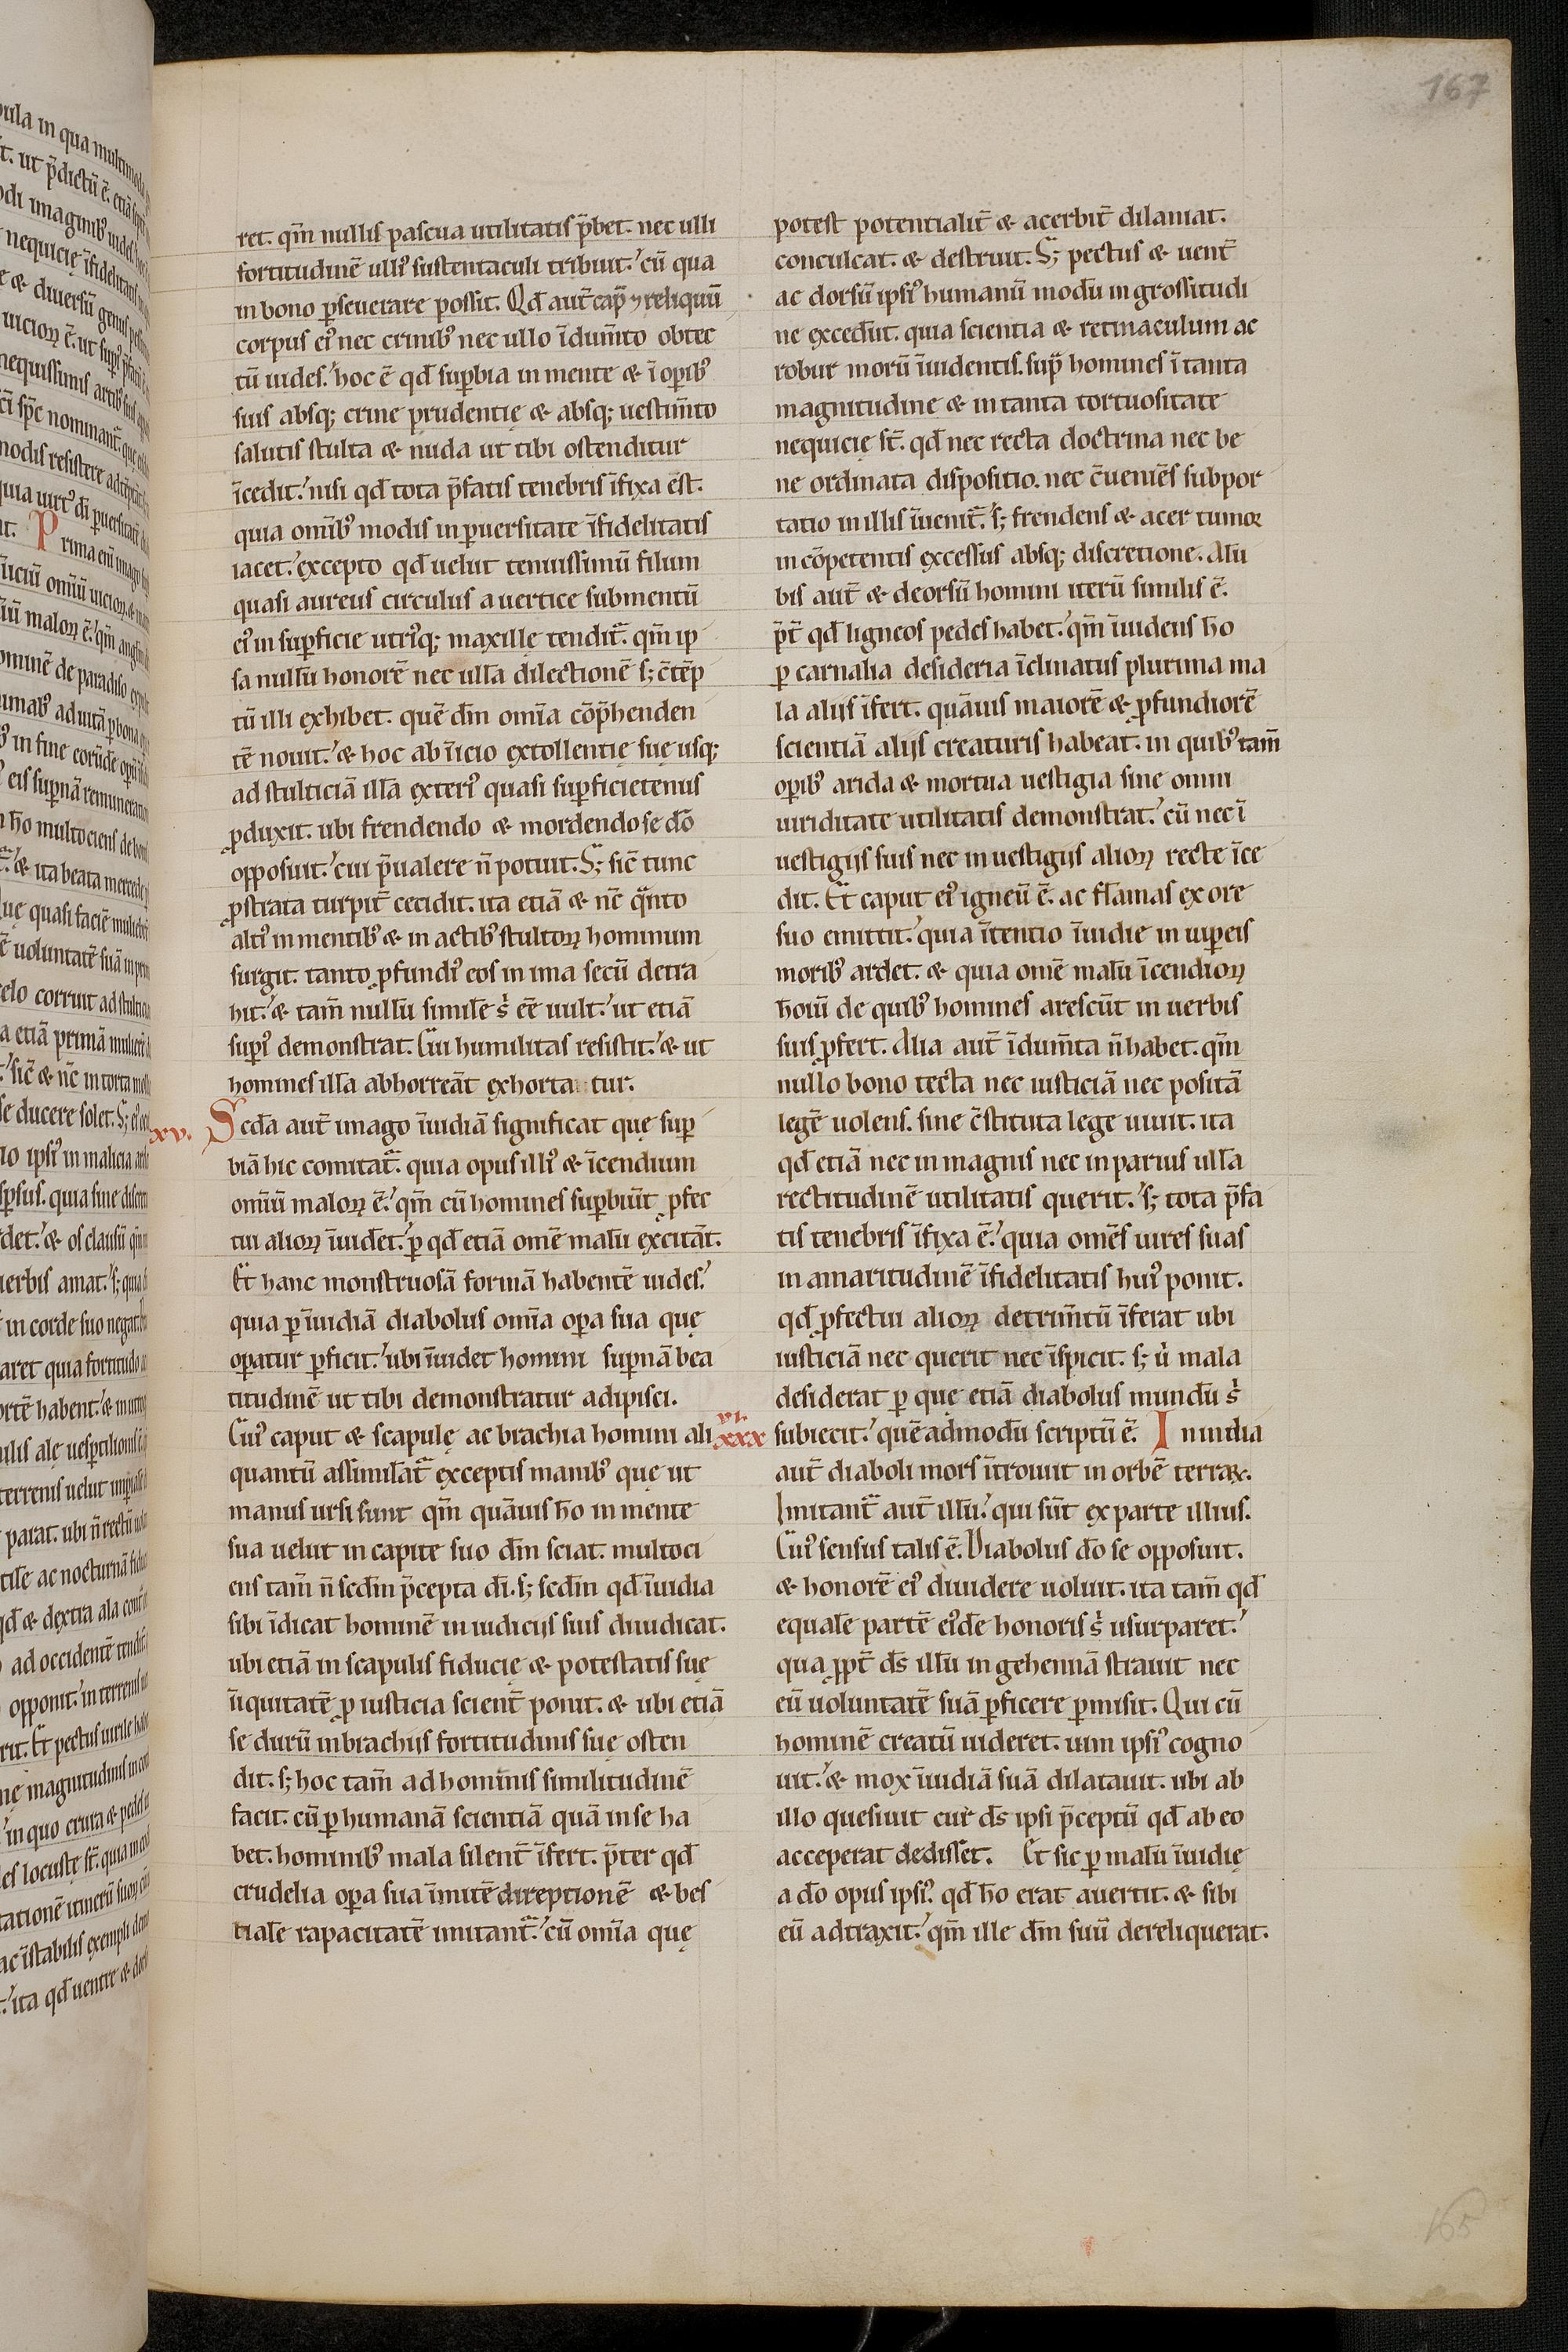 167
ret. qm̄ nullis pascua utilitatis p̄bet. nec ulli
fortitudinē ulliꝰ sustentaculi tribuit.' cū qua
in bono ꝑseuerare possit. Qd̄ aut̄ cap̄ ⁊ reliquū
corpus eiꝰ nec crinibꝰ nec ullo īdum̄to obtec
tū uides.' hoc ē qd̄ suꝑbia in mente & ī oꝑibꝰ
suis absq; crine prudentię & absq; uestim̄to
salutis stulta & nuda ut tibi ostenditur
īcedit.' nisi qd̄ tota p̄fatis tenebris īfixa ēst.
quia omībꝰ modis in ꝑuersitate īfidelitatis
iacet.' excepto qd̄ uelut tenuissimū filum
quasi aureus circulus a uertice submentū
eiꝰ in suꝑficie utriꝰq; maxillę tendit᷑. qm̄ ip
sa nullū honorē nec ullā dilectionē s; c̄tēp
tū illi exhibet. quē dm̄ omīa cōp̄henden
tē nouit.' & hoc ab īicio extollentię suę usq;
ad stulticiā illā exteriꝰ quasi suꝑficietenus
ꝓduxit. ubi frendendo & mordendo se dō
opposuit.' cui p̄ualere n̄ potuit. S; sic̄ tunc
ꝓstrata turpit̄ cecidit. ita etiā & nc̄ qͣnto
altiꝰ in mentibꝰ & in actibꝰ stultoꝝ hominum
surgit. tanto ꝓfundiꝰ eos in ima secū detra
hit.' & tam̄ nullū simile s̓ eē uult.' ut etiā
supiꝰ demonstrat. Cui humilitas resistit.' & ut
homines illā abhorreāt exhorta tur.
xv. Scd̄a aut̄ imago īuidiā significat quę suꝑ
biā hic comitat᷑. quia opus illiꝰ & īcendium
omīū maloꝝ ē.' qm̄ cū homines suꝑbiūt ꝓfec
tui alioꝝ īuidēt.' ꝑ qd̄ etiā omē malū excitāt.
Et hanc monstruosā formā habentē uides.'
quia ꝑ īuidiā diabolus omīa oꝑa sua quę
oꝑatur ꝑficit.' ubi īuidet homini suꝑnā bea
titudinē ut tibi demonstratur adipisci.
Cuiꝰ caput & scapulę ac brachia homini ali
quantū assimilat᷑ exceptis manibꝰ que ut
manus ursi sunt qm̄ quāuis hō in mente
sua uelut in capite suo dm̄ sciat. multoci
ens tam̄ n̄ scdm̄ p̄cepta dī. s; scdm̄ qd̄ īuidia
sibi īdicat hominē in iudicijs suis diiudicat.
ubi etiā in scapulis fiducię & potestatis suę
īiquitatē ꝓ iusticia scient̄ ponit. & ubi etiā
se durū in brachijs fortitudinis suę osten
dit. s; hoc tam̄ ad hominis similitudinē
facit. cū ꝑ humanā scientiā quā in se ha
bet. hominibꝰ mala silent̄ īfert. p̄ter qd̄
crudelia oꝑa sua īmitē direptionē & bes
tiale rapacitatē imitant᷑.' cū omīa quę
potest potentialit̄ & acerbit̄ dilaniat.
conculcat. & destruit. S; pectus & uent̄
ac dorsū ipsiꝰ humanū modū in grossitudi
ne excedūt. quia scientia & retinaculum ac
robur morū īuidentis. sup̄ homines ī tanta
magnitudine & in tanta tortuositate
nequicię st̄. qd̄ nec recta doctrina nec be
ne ordinata dispositio. nec c̄ueniēs subpor
tatio in illis īuenit᷑. s; frendens & acer tumoꝛ
in cōpetentis excessus absq; discretione. A lū
bis aut̄ & deorsū homini iterū similis ē.
p̄t̄ qd̄ ligneos pedes habet.' qm̄ īuidens hō
ꝑ carnalia desideria īclinatus plurima ma
la alijs īfert. quāuis maiorē & ꝓfundiorē
scientiā alijs creaturis habeat. in quibꝰ tam̄
oꝑibꝰ arida & mortua uestigia sine omni
uiriditate utilitatis demonstrat.' cū nec ī
uestigijs suis nec in uestigijs alioꝝ recte īce
dit. Et caput eiꝰ igneū ē. ac flāmas ex ore
suo emittit.' quia ītentio īuidie in uiꝑeis
moribꝰ ardet. & quia omē malū īcendioꝝ
hoīū de quibꝰ homines arescūt in uerbis
suis ꝓfert. Alia aut̄ īdum̄ta n̄ habet. qm̄
nullo bono tecta nec iusticiā nec positā
legē uolens. sine c̄stituta lege uiuit. ita
qd̄ etiā nec in magnis nec in paruis ullā
rectitudinē utilitatis querit.' s; tota p̄fa
tis tenebris īfixa ē.' quia omēs uires suas
in amaritudinē īfidelitatis huiꝰ ponit.
qd̄ ꝓfectui alioꝝ detrim̄tū īferat ubi
iusticiā nec querit nec īspicit. s; ū mala
desiderat ꝑ que etiā diabolus mundū s̓
xxxvi. subiecit.' quēadmodū scriptū ē. Inuidia
aut̄ diaboli mors ītrouit in orbē terraꝝ.
Imitant᷑ aut̄ illū.' qui sūt ex parte illius.
Cuiꝰ sensus talis ē. Diabolus dō se opposuit.
& honorē eiꝰ diuidere uoluit. ita tam̄ qd̄
equalē partē eiꝰdē honoris s̓ usurparet.'
qua ꝓpt̄ ds̄ illū in gehennā strauit nec
eū uoluntatē suā ꝑficere ꝑmisit. Qui cū
hominē creatū uideret. uim ipsiꝰ cogno
uit.' & mox īuidiā suā dilatauit. ubi ab
illo quesiuit cur ds̄ ipsi p̄ceptū qd̄ ab eo
acceperat dedisset. Et sic ꝑ malū īuidię
a dō opus ipsiꝰ. qd̄ hō erat auertit. & sibi
eū adtraxit.' qm̄ ille dm̄ suū dereliquerat.
165